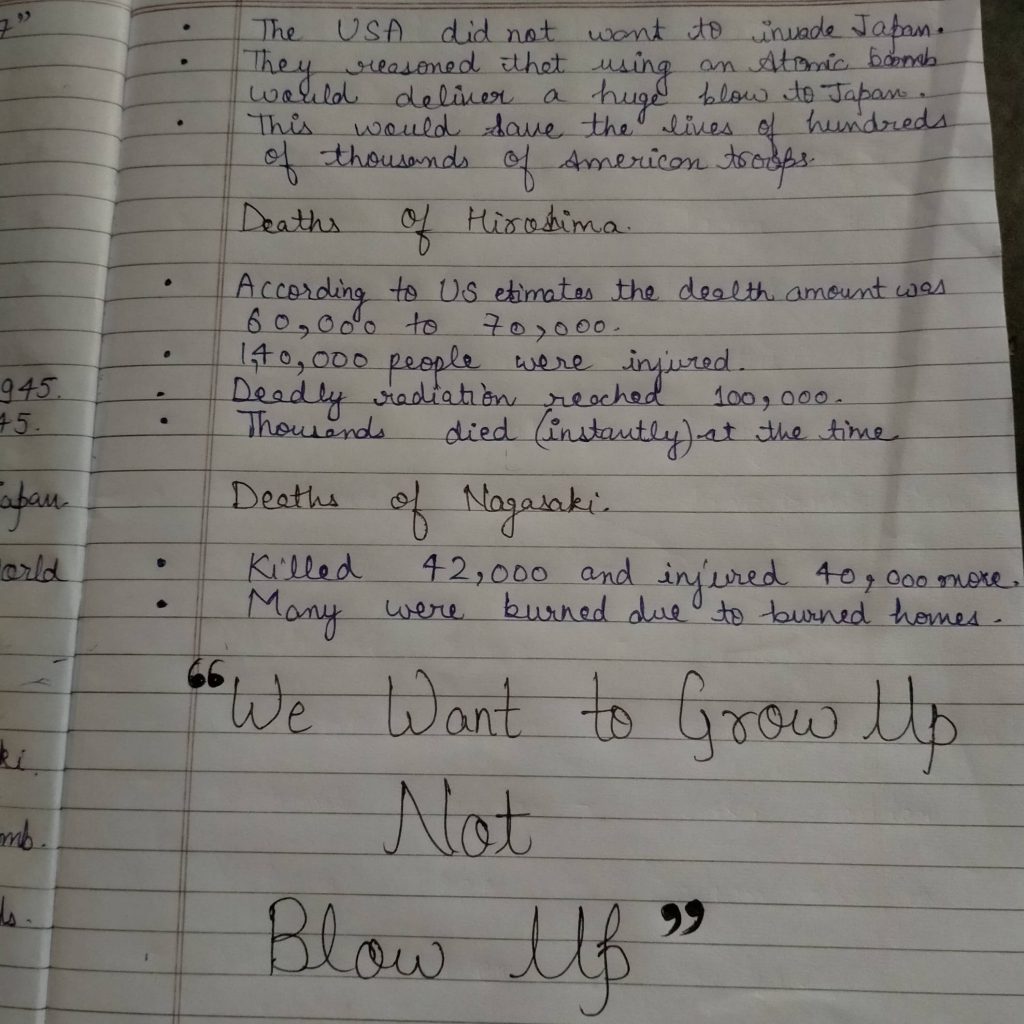 7”
• The USA did not want to invade Japan.
• They reasoned that using an Atomic bomb
would deliver a huge blow to Japan.
• This would save the lives of hundreds
of thousands of American troops.
Deaths of Hiroshima.
• According to US etimates the dealth amount was
60,000 to 70,000.
• 140,000 people were injured.
945.
• Deadly radiation reached 100,000.
45.
• Thousands died (instantly) at the time
apan
Deaths of Nagasaki.
orld
• Killed 42,000 and injured 40,000 more.
• Many were burned due to burned homes.
“We Want to Grow Up
ki.
Not
mb.
ds.
Blow Up”